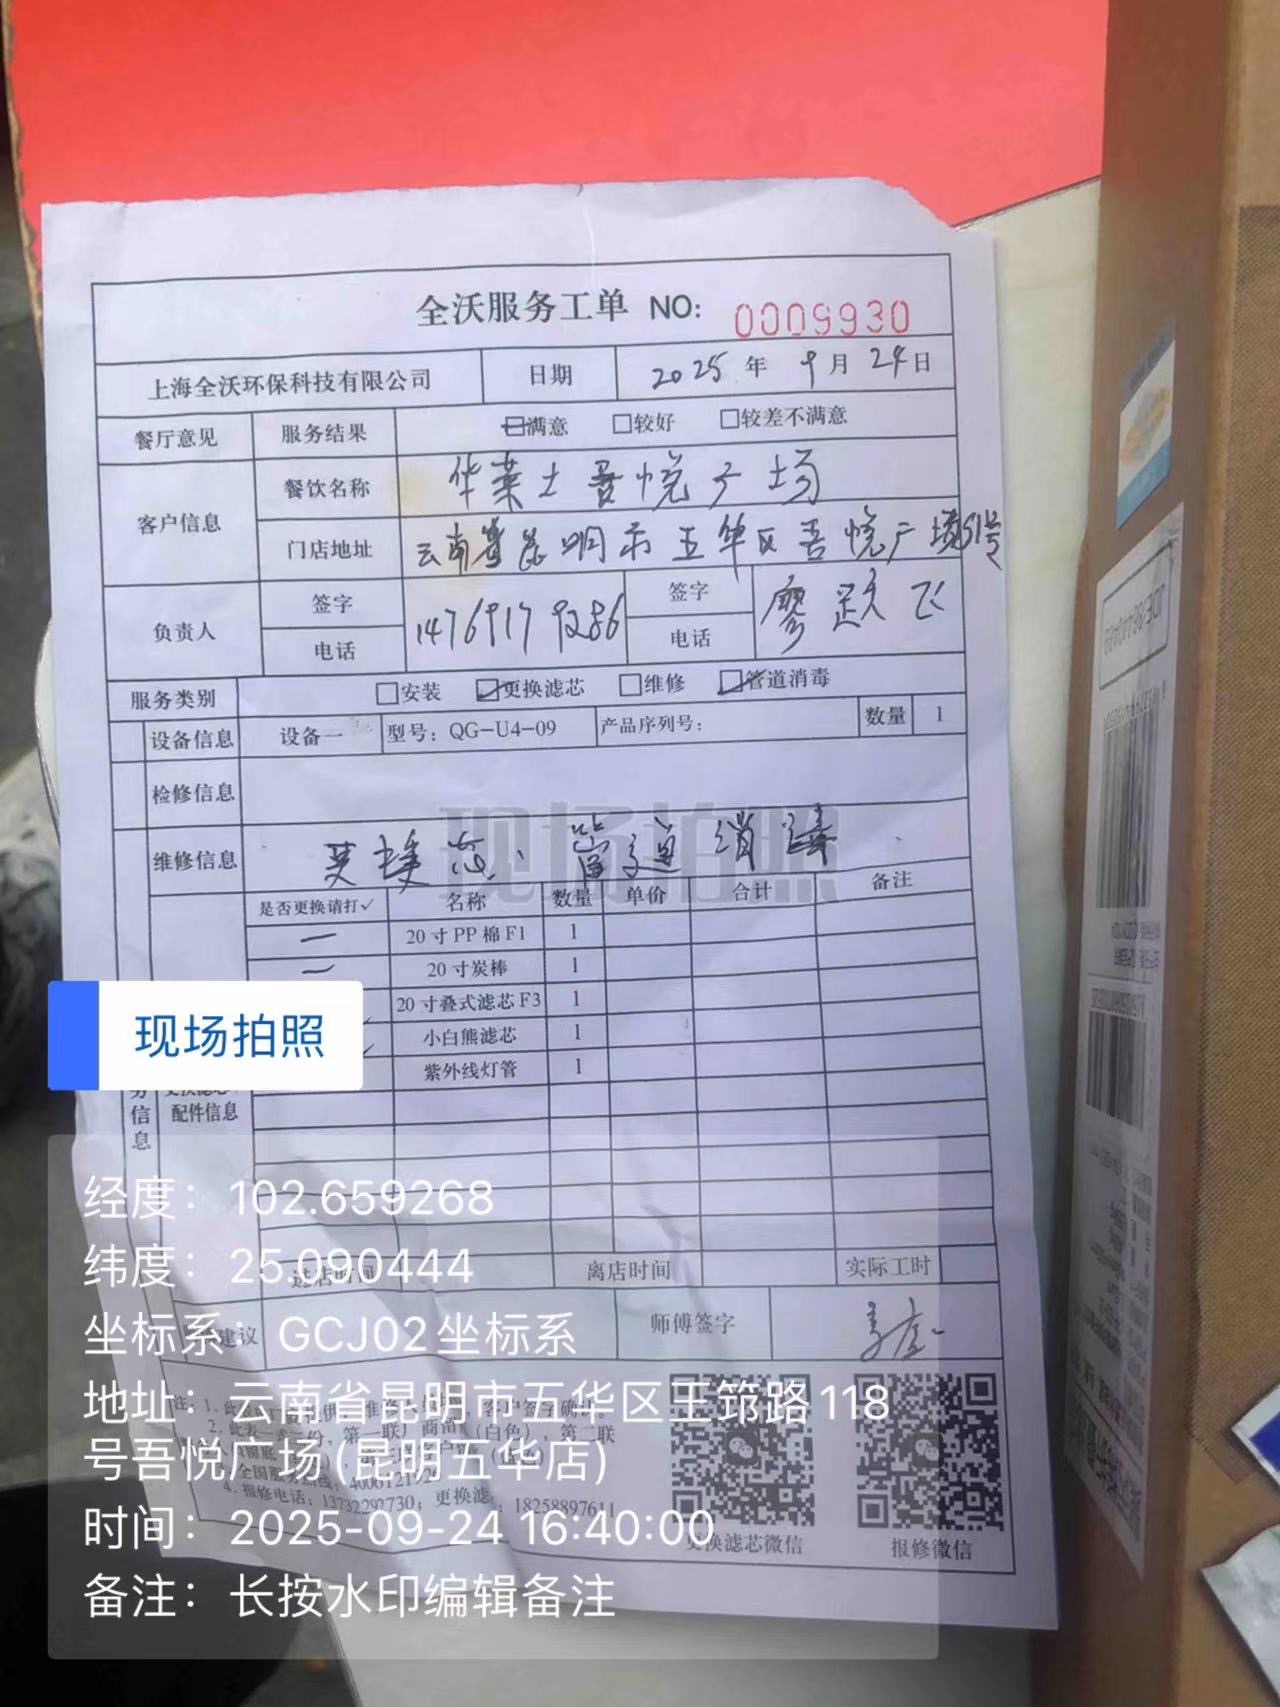 全沃服务工单 NO: 0009930
上海全沃环保科技有限公司 日期 2025 年 9 月 24 日
餐厅意见 服务结果 满意 较好 较差不满意
客户信息 餐饮名称 华莱士吾悦广场
门店地址 云南省昆明市五华区吾悦广场51号
负责人 签字 电话 14769179286 签字 电话 廖跃飞
服务类别 安装 更换滤芯 维修 管道消毒
设备信息 设备一 型号: QG-U4-09 产品序列号: 数量 1
检修信息
现场拍照
维修信息 芯、管道消毒
是否更换请打✓ 名称 数量 单价 合计 备注
20寸PP棉F1 1
20寸炭棒 1
20寸叠式滤芯F3 1
小白熊滤芯 1
紫外线灯管 1
现场拍照
配件信息
信息
离店时间 实际工时
建议 师傅签字
经度：102.659268
纬度：25.090444
坐标系：GCJ02坐标系
地址：云南省昆明市五华区王筇路118
号吾悦广场(昆明五华店)
时间：2025-09-24 16:40:00
备注：长按水印编辑备注
4. 报修电话: 13732292730; 更换滤 18258897611
更换滤芯微信 报修微信